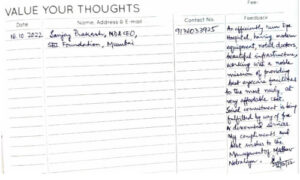 VALUE YOUR THOUGHTS
Date
Name, Address & E-mail
Contact No.
Feedback
16.10.2022
Sanjay Prakash, MD & CEO,
SBI Foundation, Mumbai
9136033925
An efficiently run Eye
Hospital, having modern
equipment, noted doctors,
beautiful infrastructure,
working with a noble
mission of providing
best eyecare facilities
to the most needy, at
very affordable cost.
Social commitment is being
fulfilled by way of free
& discounted services
My compliments and
best wishes to the
Management of
Netralaya.